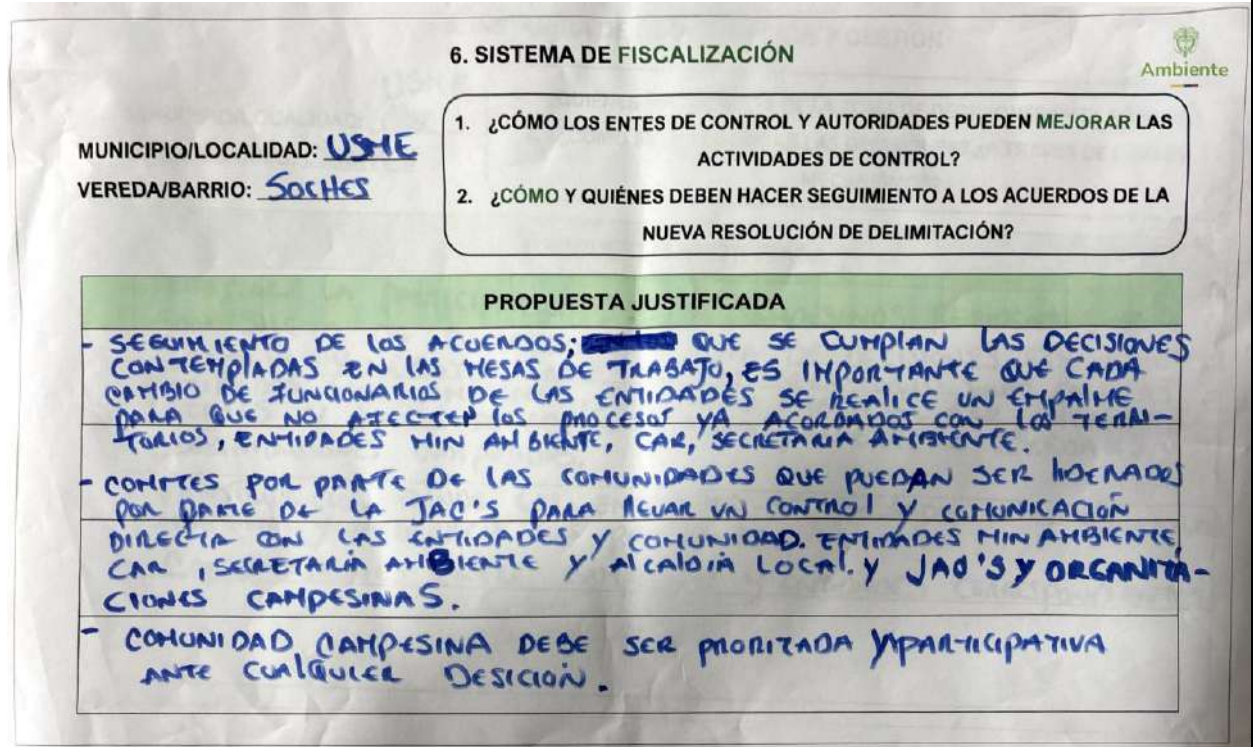 6. SISTEMA DE FISCALIZACIÓN
Ambiente
MUNICIPIO/LOCALIDAD: USME
VEREDA/BARRIO: SOCHES
1. ¿CÓMO LOS ENTES DE CONTROL Y AUTORIDADES PUEDEN MEJORAR LAS
ACTIVIDADES DE CONTROL?
2. ¿CÓMO Y QUIÉNES DEBEN HACER SEGUIMIENTO A LOS ACUERDOS DE LA
NUEVA RESOLUCIÓN DE DELIMITACIÓN?
PROPUESTA JUSTIFICADA
- SEGUIMIENTO DE LOS ACUERDOS; QUE SE CUMPLAN LAS DECISIONES
CONTEMPLADAS EN LAS MESAS DE TRABAJO, ES IMPORTANTE QUE CADA
CAMBIO DE FUNCIONARIOS DE LAS ENTIDADES SE REALICE UN EMPALME
PARA QUE NO AFECTEN LOS PROCESOS YA ACORDADOS CON LOS TERRI-
TORIOS, ENTIDADES MIN AMBIENTE, CAR, SECRETARIA AMBIENTE.
- COMITES POR PARTE DE LAS COMUNIDADES QUE PUEDAN SER LIDERADOS
POR PARTE DE LA JAC'S PARA LLEVAR UN CONTROL Y COMUNICACIÓN
DIRECTA CON LAS ENTIDADES Y COMUNIDAD. ENTIDADES MIN AMBIENTE,
CAR, SECRETARIA AMBIENTE Y ALCALDIA LOCAL. Y JAC'S Y ORGANIZA-
CIONES CAMPESINAS.
- COMUNIDAD CAMPESINA DEBE SER PRIORIZADA Y PARTICIPATIVA
ANTE CUALQUIER DESICIÓN.